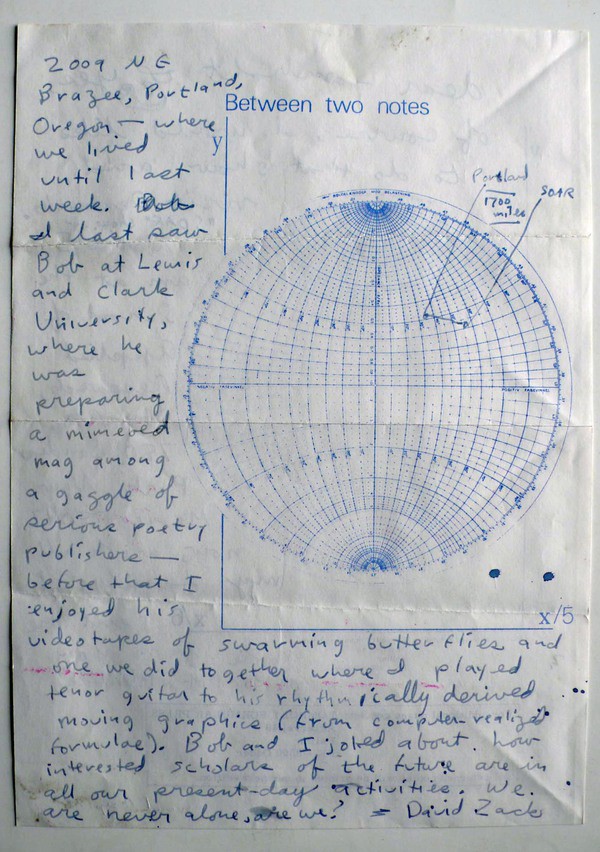 2009 NE
Brazee, Portland,
Oregon — where
we lived
until last
week. Bob
I last saw
Bob at Lewis
and Clark
University,
where he
was
preparing
a mimeoed
mag among
a gaggle of
serious poetry
publishers —
before that I
enjoyed his
videotapes of swarming butterflies and
one we did together where I played
tenor guitar to his rhythmically derived
moving graphics (from computer realized
formulae). Bob and I joked about how
interested scholars of the future are in
all our present-day activities. We
are never alone, are we? — David Zack
Between two notes
y
Portland
1700
miles
SOAR
x/5